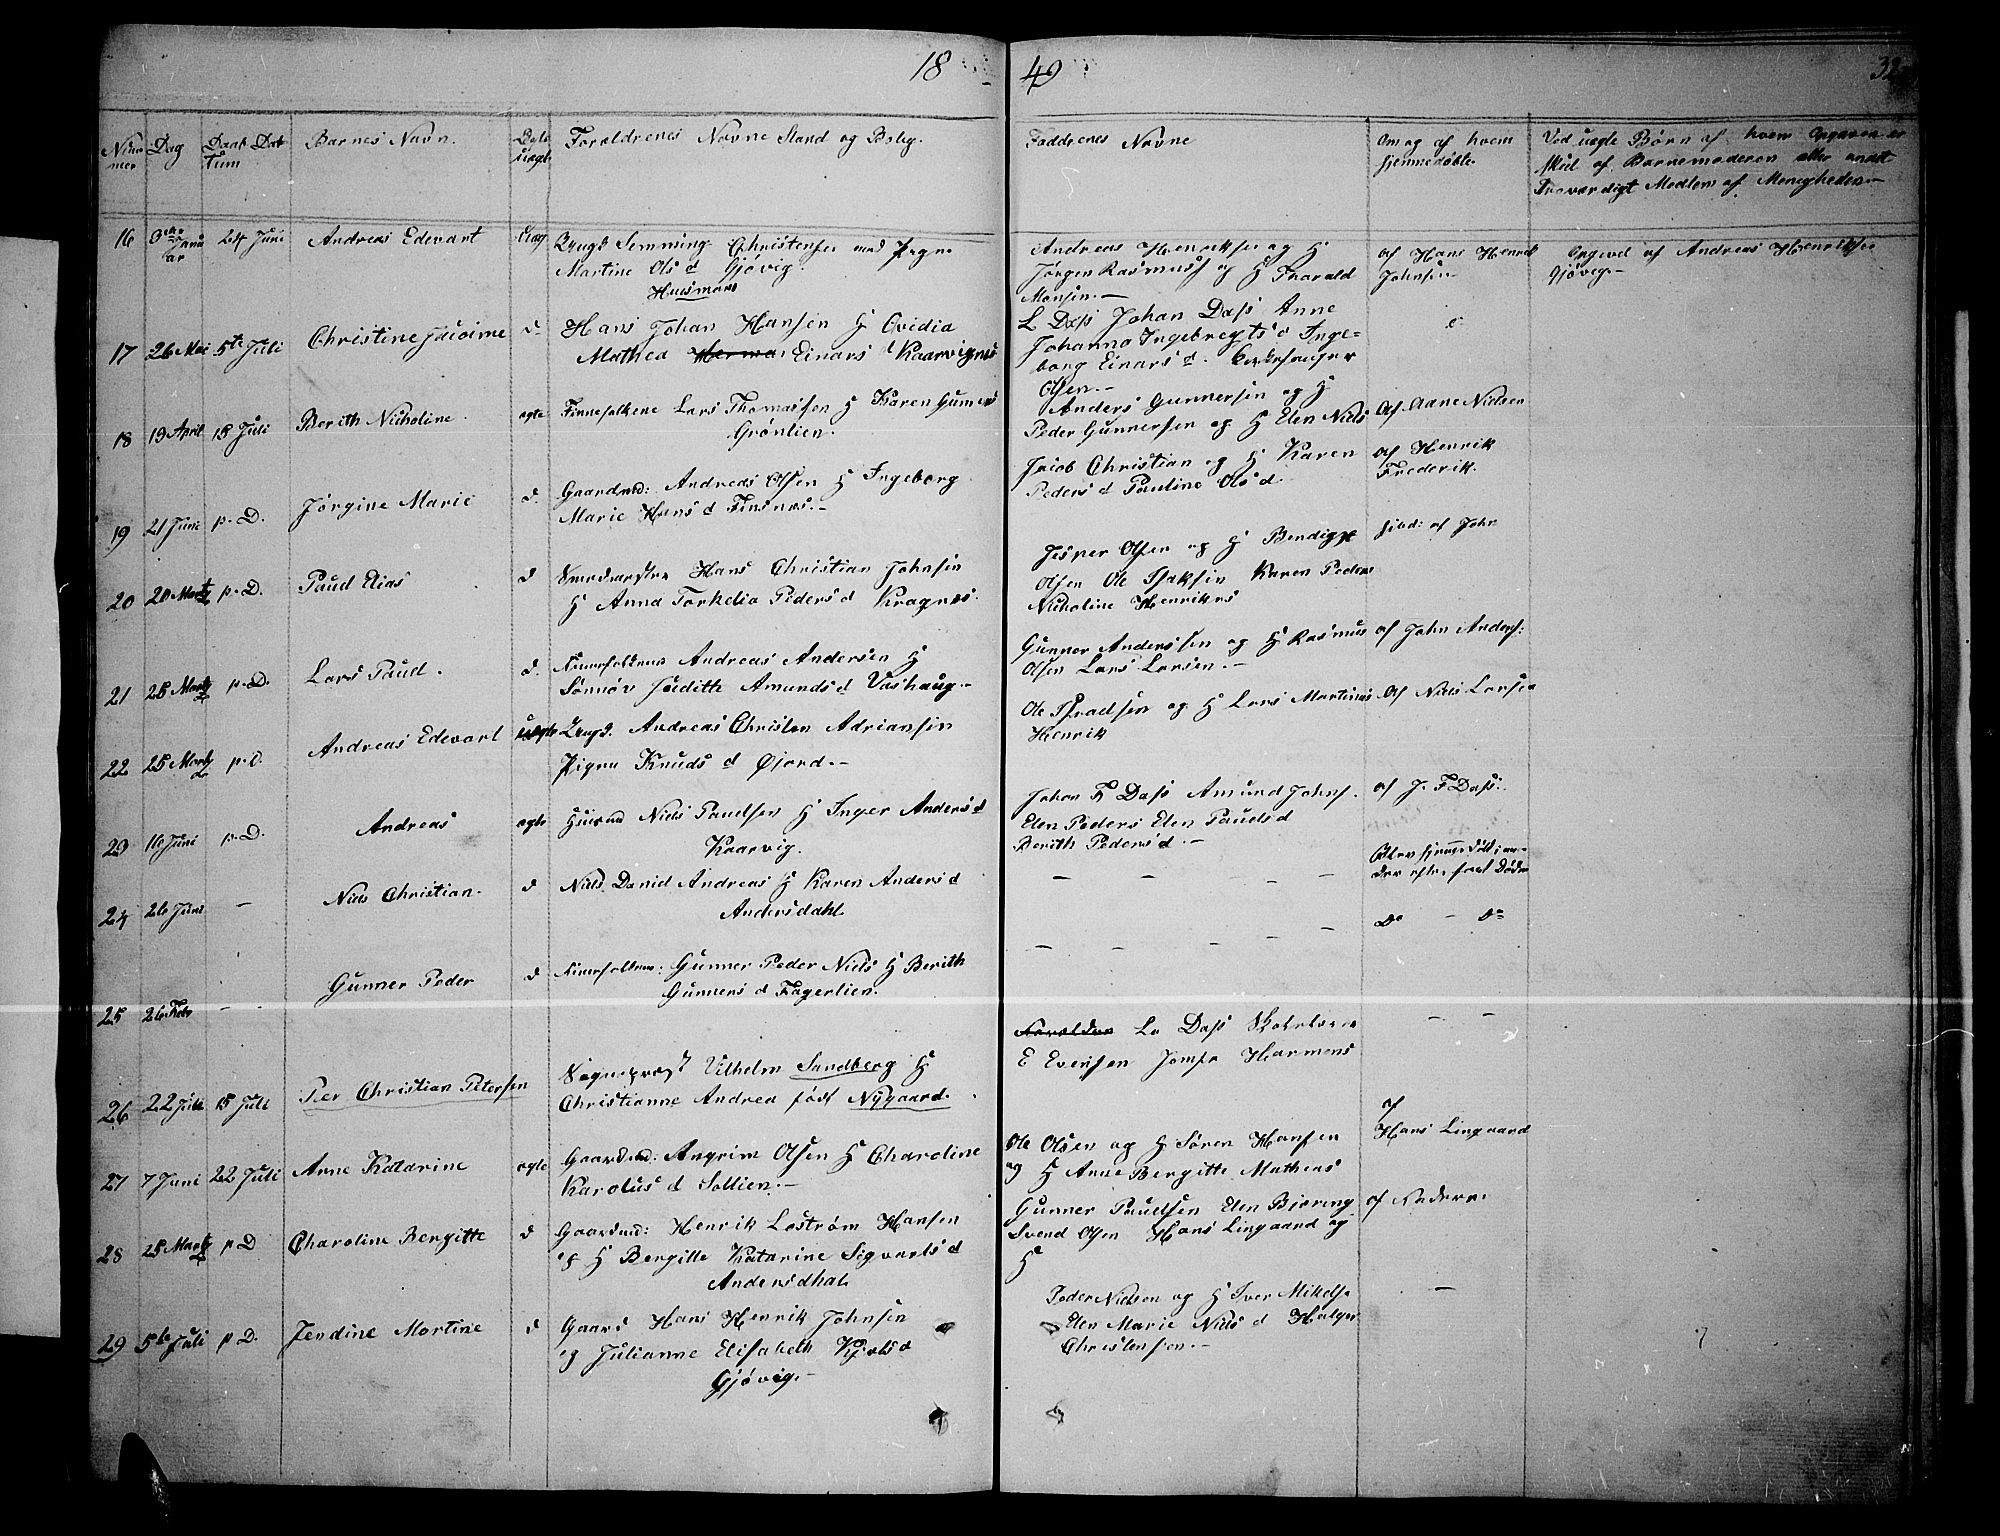 18 49 32
Num
mer
Dag
Daab Dat
tum
Barnes Navn.
Ægte
uægt
Foraldrenes Navne Stand og Bolig.
Faddrenes Navne
Om og af hvem
hjemmedøbte
Ved uægte Børn af hvem Opgaven er
skeet af Barnemoderen eller andet
Troværdigt Medlem af Menigheden.-
16 3die Janu ar 24 Juni Andreas Edevart Uæg Ungk Semming Christensen med Pigen
Martine Ols d Gjøvig.
Andreas Henriksen og H
Jørgen Rasmuss og H Tharald
Monsen.-
af Hans Henrik
Johnsen
Opgivd af Andreas Henriksen
Gjøvig.-
Huusmand
17 26 Mai 5te Juli Christine d. Hans Johan Hansen H Ovidia
Mathea Einars Kaarvignes
L Dass Johan Dass Anne
Johanna Ingebregts d Inge-
borg Einars d. Kirkesanger
Olsen.-
18 19 April 15 Juli Berith Nicholine. ægte Finnefolkene Lars Thomassen H Karen Gunners
Grønlien.
Anders Gunnersen og H
Peder Gunnersen og H Elen Niels
Af Aane Nielsen
19 21 Juni p. D. Jørgine Marie d. Gaardmd: Andreas Olsen H Ingeborg
Marie Hans d Finsnes.-
Jacob Christian og H Karen
Peders d Pauline Ols d
af Henrik
Frederik.
20 20 Martz p. D. Paul Elias d Hans Christian Johnsen
H Anna Torkelia Peders d Kragnes.
Jesper Olsen og H Bendigte
Olsen Ole Isaksen Karen Peders
Nicholine Henriks
af John
21 25 Martz p. D. Lars Paul. d. Andreas Andersen H
Sønnøv Judith Amunds d Vashaug.-
Gunner Anderssen og H Rasmus
Olsen Lars Larsen.-
af John Anders:
22 25 Martz p. D. Andreas Edevart uægte Ungk. Andreas Christen Adriansen
Pigen Knuds d Øjord.-
Ole Isralsen og H Lars Martinus
Henrik
Af Niels Larsen
23 16 Juni p. D. Andreas ægte Huusmd Niels Paulsen H Inger Anders d
Kaarvig.
Johan F Dass Amund Johns.
Elen Peders Elen Pauls d
Berith Peders d.-
af J. F Dass.
24 26 Juni - Niels Christian. d Niels Daniel Andreas H Karen Anders d
Andersdahl
- - - -
Blev hjemmedøbt
25 26 Febr - - Gunner Peder d Gunner Peder Niels H Berith
Gunners d Fagerlien.
- - - -
Do - do
26 22 Juli 15 Juli Peer Christian Petersen Sogneprest Vilhelm Sandberg H
Christianne Andrea født Nygaard.
La Dass
E Evensen Jomfr Harmens
- -
27 7 Juni 22 Juli Anne Katarine ægte Gaardmd: Angrim Olsen H Charoline
Karolus d Sollien.-
Ole Olsen og H Søren Hansen
og H Anne Bergitte Mathias
af
Hans Lingaard
28 25 Martz p D Charoline Bergitte d Gaardmd: Henrik Løstrøm Hansen
og H Bergitte Katarine Sigvarts d
Andersdhal
Gunner Paulsen Elen Bjøring
Svend Olsen Hans Lingaard og
H
af Faderen
29 5te Juli p D. Jendine Martine d Gaard Hans Henrik Johnsen
og Julianne Elisabeth Kjels d
Gjøvig.-
Peder Nielsen og H Iver Mikels
Elen Marie Niels d Holger
Christensen.-
-